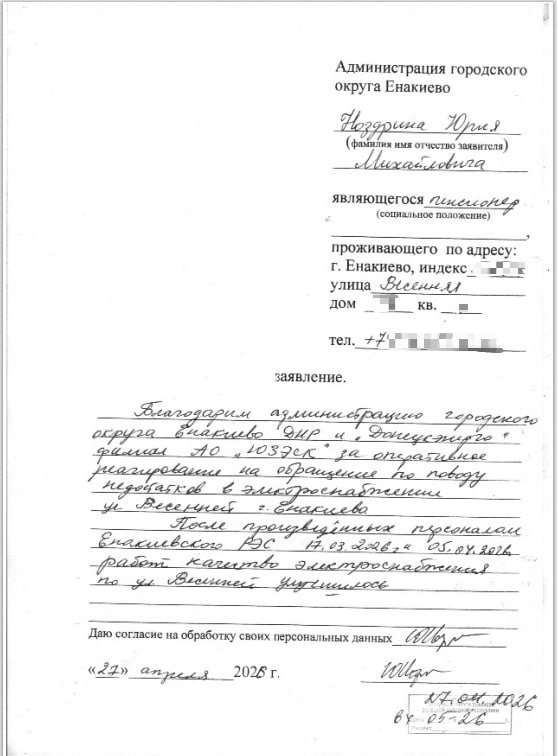 Администрация городского
округа Енакиево
Ноздрина Юрия
(фамилия имя отчество заявителя)
Михайловича
являющегося пенсионер
(социальное положение)
проживающего по адресу:
г. Енакиево, индекс
улица Весенняя
дом кв.
тел. +7
заявление.
Благодарим администрацию городского
округа Енакиево ДНР и „Донецкэнерго"
филиал АО „ЮЗЭСК" за оперативное
реагирование на обращение по поводу
недостатков в электроснабжении
ул Весенней г. Енакиева
После произведённых персоналом
Енакиевского РЭС 17.03.2026г и 05.04.2026
работ качество электроснабжения
по ул Весенней улучшилось
Даю согласие на обработку своих персональных данных
«27» апреля 2026 г.
27.04.2026
вх 05-26